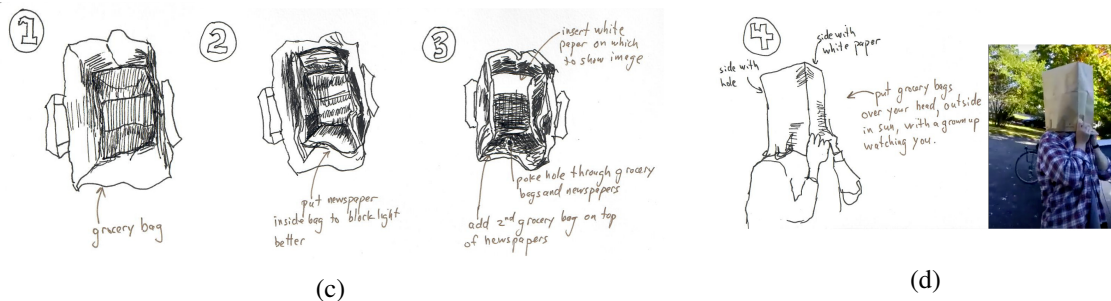 1
grocery bag
2
put newspaper
inside bag to block light
better
3
insert white
paper on which
to show image
poke hole through grocery
bags and newspapers
add 2nd grocery bag on top
of newspapers
(c)
4
side with
hole
side with
white paper
put grocery bags
over your head, outside
in sun, with a grownup
watching you.
(d)